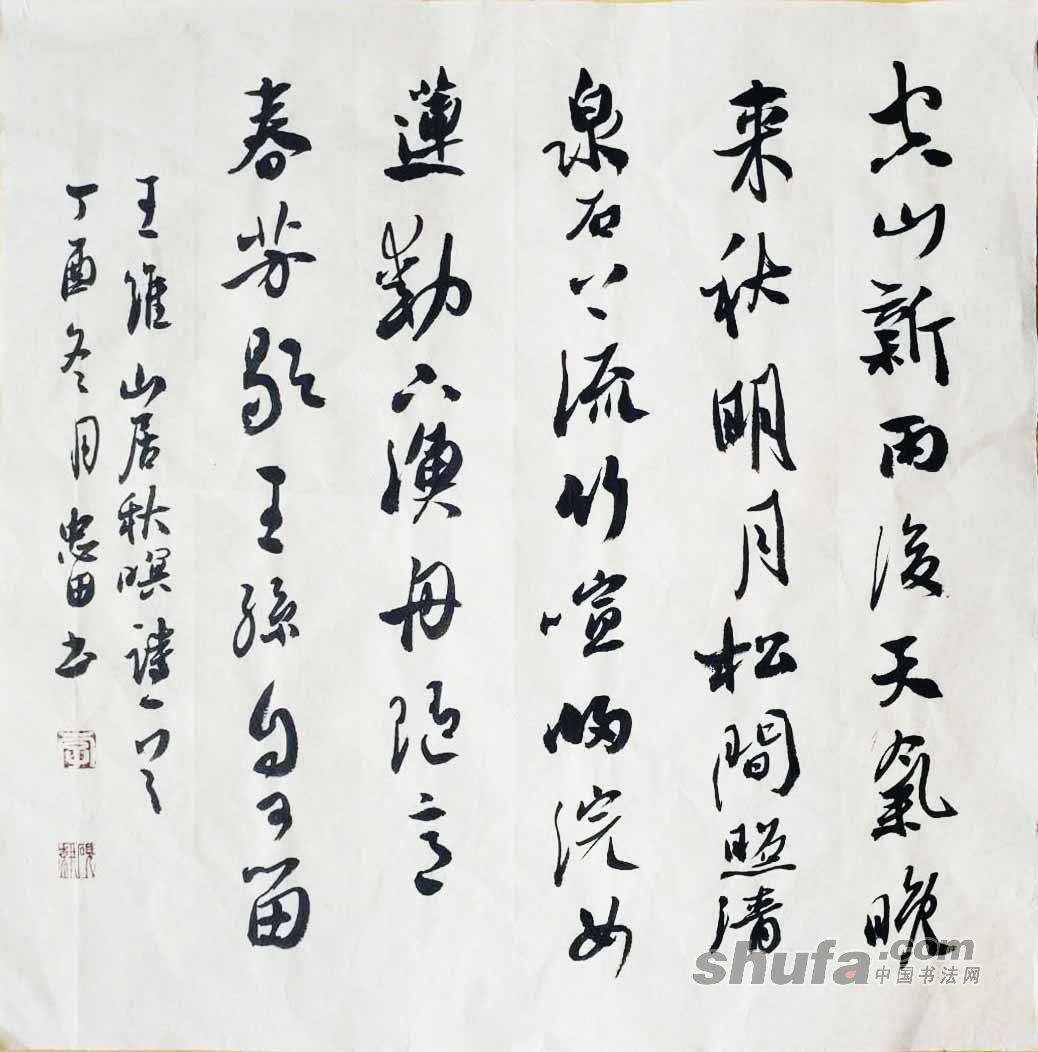 空山新雨後天氣晚
来秋明月松間照清
泉石上流竹喧歸浣女
蓮動下漁舟随意
春芳歇王孫自可留
王維山居秋暝詩一首
丁酉冬月忠田书
shufa.com
中国书法网